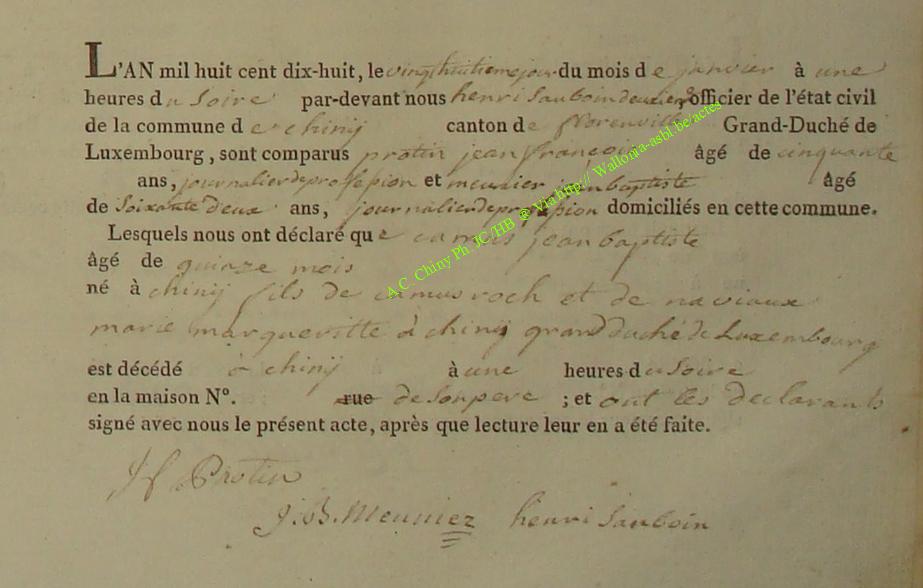 L'AN mil huit cent dix-huit, le vingt huitieme jour du mois de janvier à une
heures du soire par-devant nous henri Sauboin officier de l'état civil
de la commune de chinij canton de florenville Grand-Duché de
Luxembourg, sont comparus protin jean françois âgé de cinquante
ans, journalier de profession et meunier jean baptiste âgé
de soixante deux ans, journalier de profession domiciliés en cette commune.
Lesquels nous ont déclaré que camus jean baptiste
âgé de quinze mois
né à chinij fils de camus roch et de naviaux
marie margueritte à chinij grand duché de Luxembourg
est décédé à chinij à une heures du soire
en la maison N°. rue de son pere ; et ont les declarants
signé avec nous le présent acte, après que lecture leur en a été faite.
J f Protin
J.B. Meuniez henri Sauboin
A.C. Chiny Ph JC/HB @ Via http:// Wallonia-asbl.be/actes